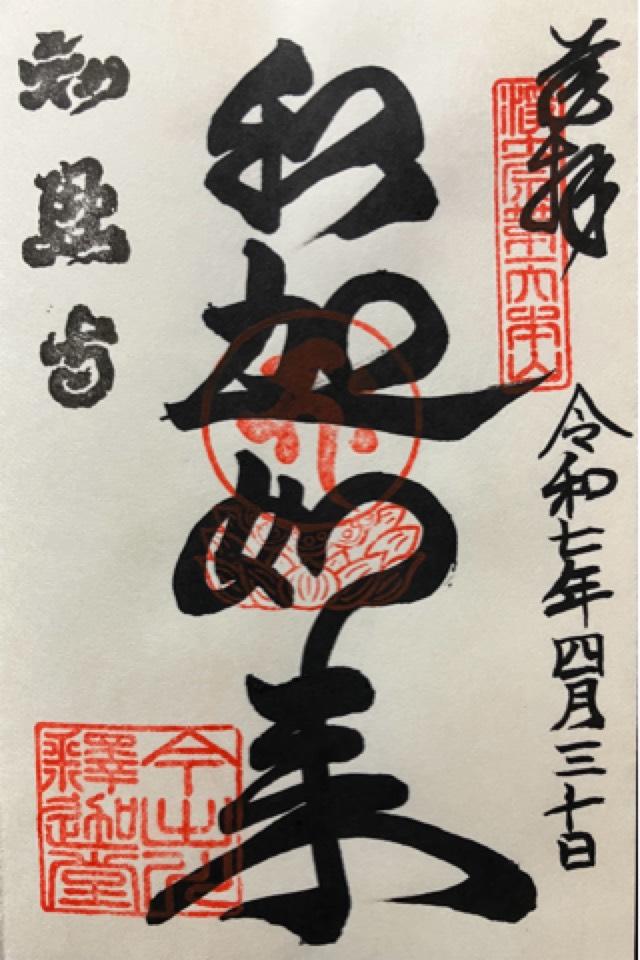 奉拝
淨土宗第六本山
令和七年四月三十日
釈迦如来
知恩寺
今出川
釋迦堂